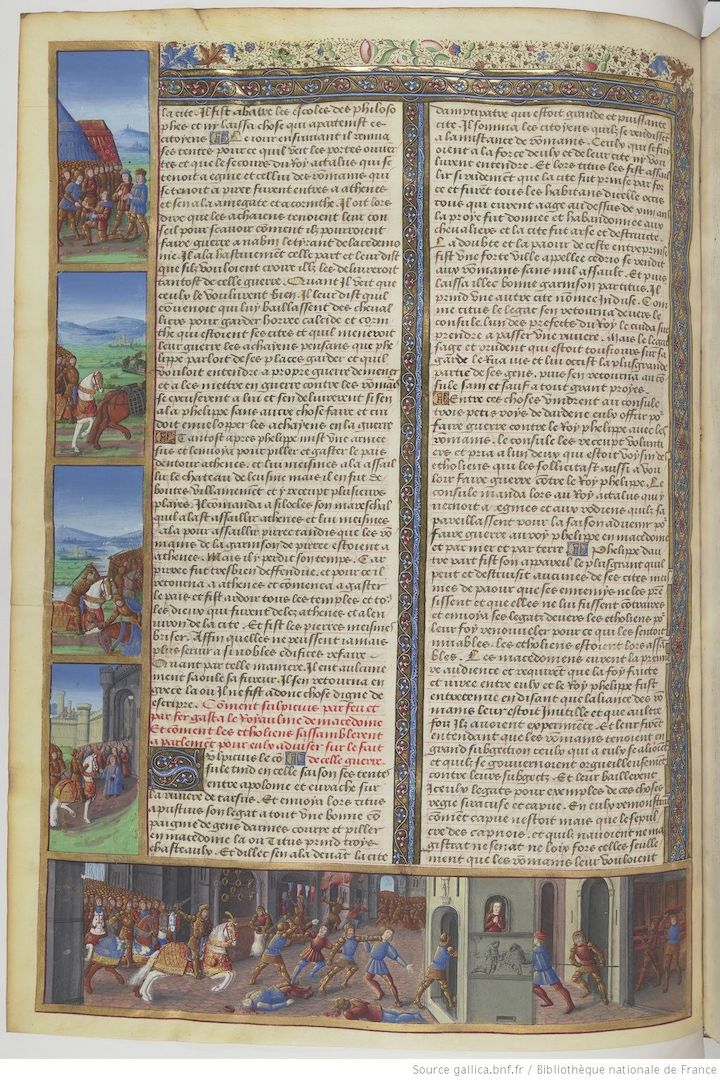 la cite. Il fist abatre les escoles des philoso
phes et ny laissa chose qui apartenist es
citoyens Le iour ensuivant il renvoia
ses tentes pource quil veit les portes ouver
tes et que le secours du Roy actalus qui se
tenoit a egine et cellui des rōmains qui
se tenoit a piree fuvent entres a athenes
et sen ala a megare et a corinthe. Il oit lors
dire que les achaiens tenoient leur con
seil pour scavoir cōment ilz pourroient
faire guerre a nabin le tirant de lacedemo
nie. Il ala hastivement celle part et leur dist
que silz vouloient croire il les delivreroit
tantost de celle guerre. Quant il veit que
ceulx le vouloient bien. Il leur dist quil
cōvenoit quilz luy baillassent des cheval
liers pour garder
qui estoient ses cites et quil meneroit
leur guerre les achaiens pensans que phe
lippe parloit de ses places garder et quil
vouloit entendre a propre guerre demener
et a les mettre en guerre contre les rōmais
se excuserent a lui et sen delivrerent si sen
ala phelippe sans autre chose faire et cui
doit envelopper les achaiens en la guerre
Tantost apres phelippe mist une armee
sus et lenvoia pour piller et gaster le pais
dentour athenes. et lui meismes ala assail
lir le chasteau de leusine mais il en fut de
boute villainement et y receupt plusieurs
playes. Il cōmanda a filocles son mareschal
quil alast assaillir athenes et lui meismes
ala pour assaillir piree tandis que les rō
mains de la garnison de piree estoient a
athenes. Mais il y perdit son temps. Car
piree fut tresbien deffendue. et pour ce il
retourna a athenes et cōmenca a gaster
le pais et fist ardoir tous les temples et to9
les dieux qui furent delez athenes et a len
viron de la cite. Et fist les pierres meismes
briser. Affin quelles ne peussent iamais
plus servir a si nobles edifices refaire.
Quant par telle maniere Il eut aulcune
ment saoule sa fureur. Il sen retourna en
grece la ou Il ne fist adonc chose digne de
escripre.
Cōment sulpicius par feu et
par fer gasta le Royaulme de macedone
Et cōment les etholiens sassamblerent
a parlement pour eulx adviser sur le fait
de celle guerre.
Sulpicius le cō
sule tint en celle saison ses tentes
entre apolonie et
la riviere de Et envoia lors titus
apustius son legat a tout une bonne cō
paignie de gens darmes courre et piller
en macedone la ou Titus print troys
chasteaulx. Et dillec sen ala devāt la cite
dantipatre qui estoit grande et puissante
cite. Il somma les citoyens quilz se rendissēt
a la puissance de rōmains. Ceulx qui se fui
oient a la force deulx et de leur cite ny vou
lurent entendre. Et lors titus les fist assail
lir si rudement que la cite fut prinse par for
ce et furēt tous les habitans dicelle occis
tous qui eurent aage au dessus de vint ans
la proye fut donnee et habandonnee aux
chevaliers et la cite fut arse et destruicte.
La doubte et la paour de ceste entreprinse
fist une forte ville appellee cedrio se rendit
aux rōmains sans nul assault. Et puis
laissa illec bonne garnison par titus. Il
print une autre cite nōmee induse. Com
me titus le legat sen retourna devers le
consule. lun des prefects du Roy le cuida sur
prendre a passer une riviere. Mais le legat
sage et prudent qui estoit tousiours sur sa
garde le Rua ius et lui occist la plusgrande
partie de ses gens. puis sen retourna au cō
sule sain et sauf a tout grant proyes.
Entre ces choses vindrent au consule
trois petis roys de dardene eulx offrir po9
faire guerre contre le Roy phelippe avec les
rōmains. Le consule les receupt volunti
ers et pria a lun deulx qui estoit voisin des
etholiens qui les sollicitast aussi a vou
loir faire guerre contre le Roy phelippe. Le
consule manda lors au Roy actalus qui y
vernoit a egines et aux rodiens quilz sa
pareillassent pour la saison advenir po9
faire guerre au roy phelippe en macedone
et par mer et par terre Phelippe dau
tre part fist son appareil le plus grant quil
peut et destruisit aucunes de ses cites mes
mes de paour que ses ennemys ne les prē
sissent et que elles ne lui fussent cōtraires
et envoia ses legatz devers les etholiens po9
leur foy renouveler pour ce quil les sentoit
muables. les etholiens estoient lors assā
bles. Les macedoniens eurent la premie
re audience et requirēt que la foy faicte
et iuree entre eulx et le Roy phelippe fust
entretenue en disant que laliance des rō
mains leur estoit inutille et que aultre
foiz ilz avoient experimēte. Et leur firēt
entendant que les rōmains tenoient en
grand subgection ceulx qui a eulx se alioiēt
et quilz se gouvernoient orgueilleusemēt
contre leurs subgectz. Et leur baillerent
Iceulx legatz pour exemples de ces choses
regie siracuse et capue. En eulx remonstrāt
cōmēt capue nestoit mais que le sepul
cre des capnois. et quilz navoient ne ma
gistrat ne senat ne loix fors celles seulle
ment que les rōmains leur vouloient
Source gallica.bnf.fr / Bibliothèque nationale de France